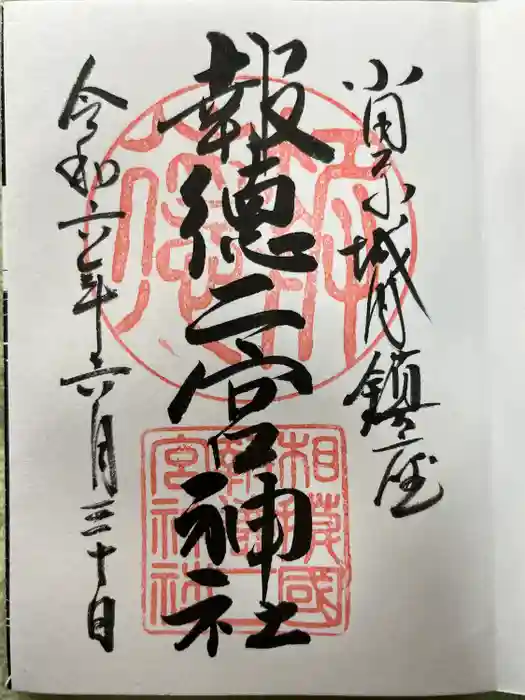 小田原城内鎮座
報徳二宮神社
令和六年六月三十日
相模國
報徳二
宮神社